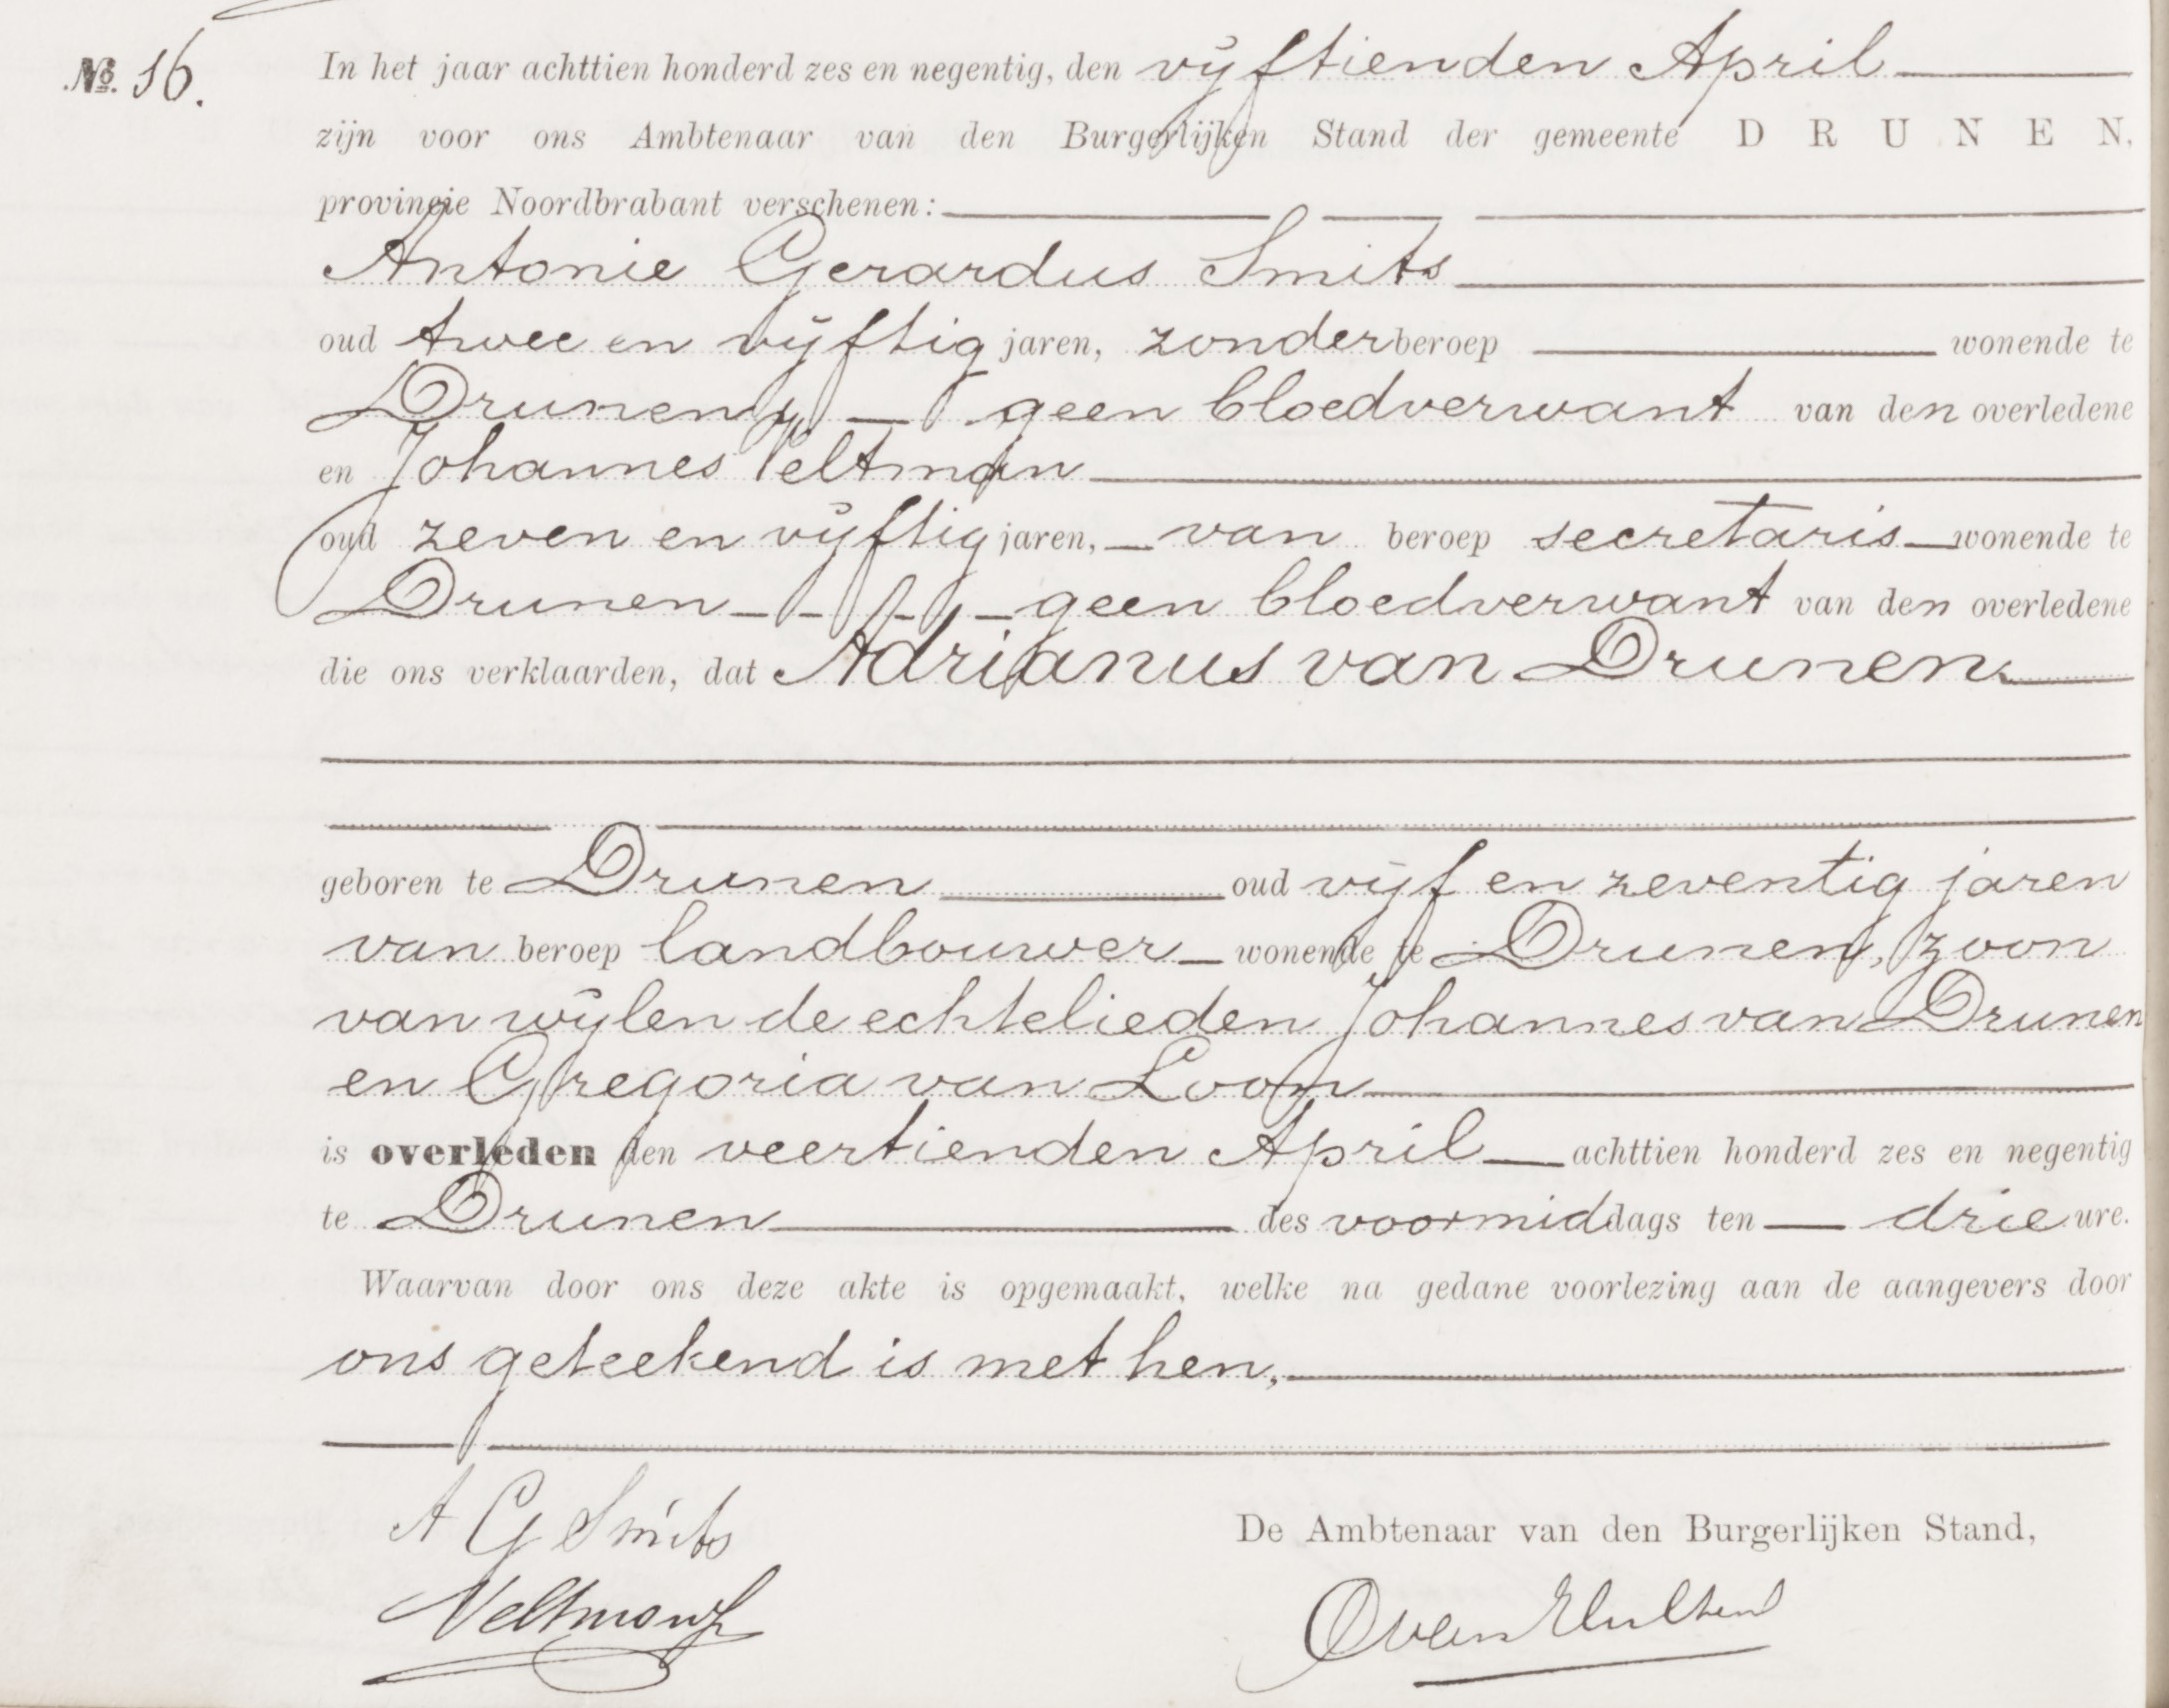 No. 16. In het jaar achttien honderd zes en negentig, den vijftienden April
zijn voor ons Ambtenaar van den Burgerlijken Stand der gemeente DRUNEN,
provincie Noordbrabant verschenen:
Antonie Gerardus Smits
oud twee en vijftig jaren, zonder beroep wonende te
Drunen, geen bloedverwant van den overledene
en Johannes Veltman
oud zeven en vijftig jaren, van beroep secretaris wonende te
Drunen geen bloedverwant van den overledene
die ons verklaarden, dat Adrianus van Drunen
geboren te Drunen oud vijf en zeventig jaren
van beroep landbouwer wonende te Drunen, zoon
van wijlen de echtelieden Johannes van Drunen
en Gregoria van Loon
is overleden den veertienden April achttien honderd zes en negentig
te Drunen des voormiddags ten drie ure.
Waarvan door ons deze akte is opgemaakt, welke na gedane voorlezing aan de aangevers door
ons geteekend is met hen,
A G Smits
De Ambtenaar van den Burgerlijken Stand,